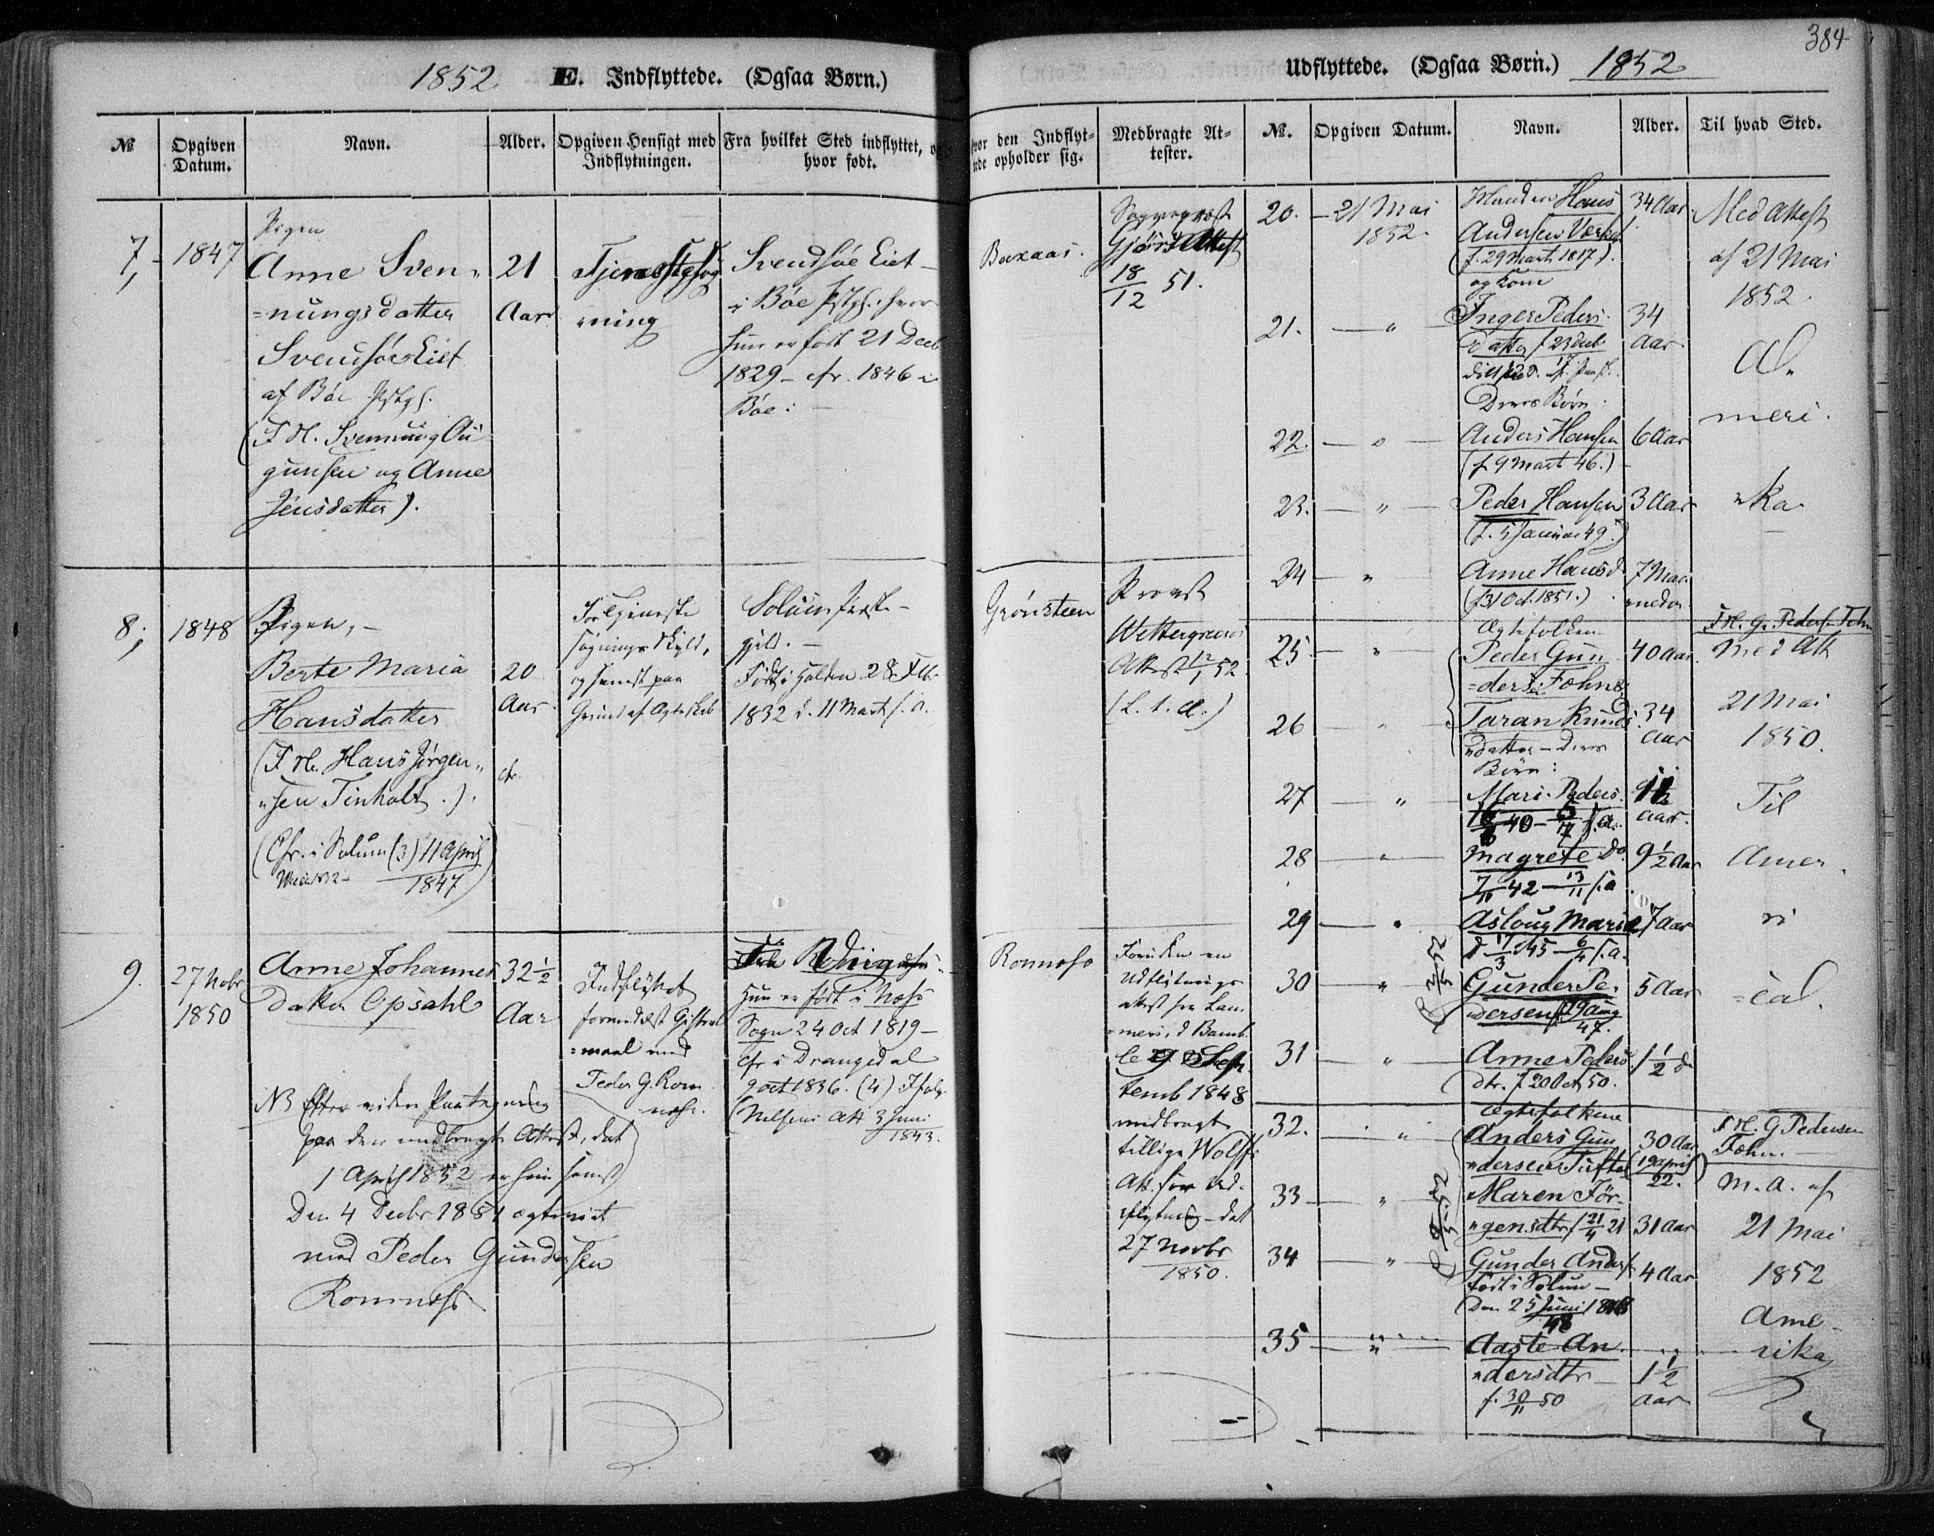 384
1852 E. Indflyttede. (Ogsaa Børn.)
№
Opgiven Datum.
Navn.
Alder.
Opgiven Hensigt med Indflytningen.
Fra hvilket Sted indflyttet, og hvor født.
Hvor den Indflyt-
nde opholder sig.
Medbragte At-
tester.
7,
1847
Pigen
Anne Sven„
=nungsdatter
Svendsøe Eiet
af Bøe Prstgj.
(F. M. Svennung Au
gunsen og Anne
Jensdatter).
21
Aar
Tjenestesøg
ning
Svendsøe Eiet
i Bøe Prstgj. hvor
hun er født 21 Decb
1829 – cfr. 1846 i
Bøe:
Baxaas.
Attest
18/12 51.
8,
1848
Pigen, –
Berte Maria
Hansdatter
(F. M. Hans Jørgen„
„sen Tinholt.)
(Cfr. i Solum (3) 11 April
1847)
20
Aar
For Tjeneste
søgnings Skyld,
og senest paa
Grund af Ægteskab
Solum Præste-
gjeld. –
Født i Holden 28 Feb
1832 d. 11 Marts s. a.
Grønsteen
Provst
Wettergreens
Attest 12/1 52
(L. 1. a.)
9.
27 Nobr
1850
Anne Johannes
datter Opsahl
32½
Aar
Indflyttet
formedelst Gifter
=maal med
Peder G. Rom
næss.
Hun er født i Næss
Sogn 24 Oct 1819 –
cfr i Drangedal
9 oct 1836. (4) Ifølge
Nelsens Att 3 Juni
1843.
Romnæss
Foruden en
Udflytnings
attest fra Lam
=mers, d Bamb
le 29 Sep
temb 1848
medbragt
tillige Wolffs
Att. for Ud
flytning – dat
27 Novbr
1850.
NB Efter videre Paategning
paa den medbragte Attest, dat
1 April 1852 er hun senest
Den 4 Decbr 1851 ægteviet
med Peder Gundersen
Romnæss
Udflyttede. (Ogsaa Børn.) 1852
№.
Opgiven Datum.
Navn.
Alder.
Til hvad Sted.
20. – 21 Mai
1852.
Manden Hans
Andersen
(f. 29 Marts 1817).
og Kone
34 Aar
Med Attest
af 21 Mai
1852.
A„
meri.
„ka
21. – „
Inger Peders
datter f 23 Decb
Deres Børn.
34
Aar
22. – „
Anders Hansen
(f. 9 Mart 46.)
6 Aar
23. – „
Peder Hansen
(f. 5 Januar 49.)
3 Aar
24 – „
Anne Hansd.
(f 31 Oct. 1851.)
7 Maa
neder
25 – „
Ægtefolken
Peder Gun
=dersen Fæhn
40 Aar.
F. M. G. Peders. Fæhn
Med Att
21 Mai
1850.
Til
Amer.
ri
=cal.
26 „
Taran Knuds
„datter – Deres
Børn:
34
Aar
27 – „
Mari Peders.
11½
Aar.
28 – „
Magrete Do
7/11 42 – 13/11 s. a.
9½ Aar
29 – „
Asloug Maria
d 17/3 45 – 6/4 s. a.
7 Aar
30 – „
Gunder Pe„
„dersen f 29 Aug
47.
5 Aar
31 – „
Anne Peders
dtr. f 20 Oct 50.
1½ d
32. „
Ægtefolkene
Anders Gun
„dersen Tufte
30 Aar
(19 April
22.)
F. M. G Pedersen
Fæhn. –
M. A. af
21 Mai
1852
Ame-
rika
33 – „
Maren Jør-
„gensdtr f 21/4 21
31 Aar
34 – „
Gunder Anders
født i Solum –
Den 25 Juni
48
4 Aar
35 – „
Aaste An
„dersdtr
f. 30/11 50
1½
Aar